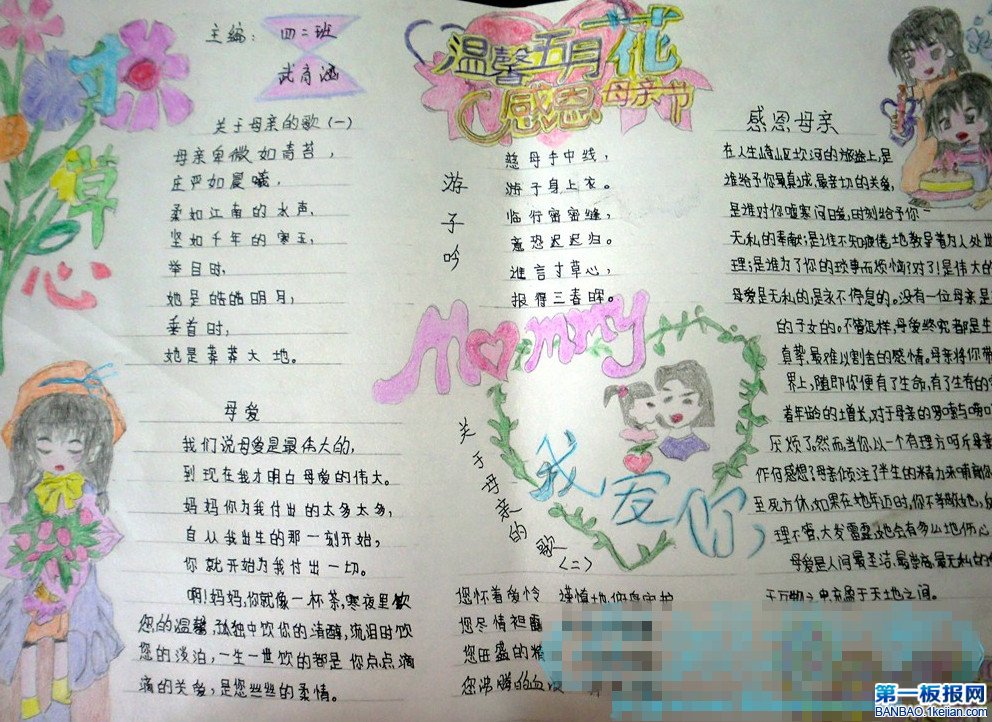 主编：四二班
武
温馨五月花
感恩母亲节
寸草心
关于母亲的歌(一)
母亲卑微如青苔，
庄严如晨曦，
柔如江南的水声，
坚如千年的寒玉，
举目时，
她是皓皓明月，
垂首时，
她是莽莽大地。
母爱
我们说母爱是最伟大的，
到现在我才明白母爱的伟大。
妈妈你为我付出的太多太多，
自从我出生的那一刻开始，
你就开始为我付出一切。
啊!妈妈,你就像一杯茶,寒夜里饮
您的温馨,孤独中饮你的清醇,流泪时饮
您的淡泊,一生一世饮的都是你点点滴
滴的关爱,是您丝丝的柔情。
游子吟
慈母手中线，
游子身上衣。
临行密密缝，
意恐迟迟归。
谁言寸草心，
报得三春晖。
Mommy
我爱你,
关于母亲的歌(二)
您怀着爱怜
您尽情袒露
您旺盛的精
您沸腾的血液
感恩母亲
在人生崎山区坎河的旅途上,是
谁给予你最真诚、最亲切的关爱,
是谁对你嘘寒问日爰,时刻给予你一
无私的奉献;是谁不知疲倦地教导着为人处世
理;是谁为了你的琐事而烦恼?对了!是伟大的
母爱是无私的;是永不停息的。没有一位母亲是
的子女的。不管怎样,母爱终究都是生
真挚、最难以割舍的感情。母亲将你带
界上,随即你便有了生命,有了生存的
着年龄的土曾长,对于母亲的罗嗦与唠叨
厌烦了。然而当你以一个有理方呵斥母亲
作何感想?母亲倾注了半生的精力来哺育你
至死方休,如果在她年迈时,你不孝敬她,
理不管,大发雷霆,她会有多么地伤心
母爱是人间最圣洁、最崇高、最无私的
于万物之中,充盈于天地之间。
第一板报网
BANBAO.1kejian.com